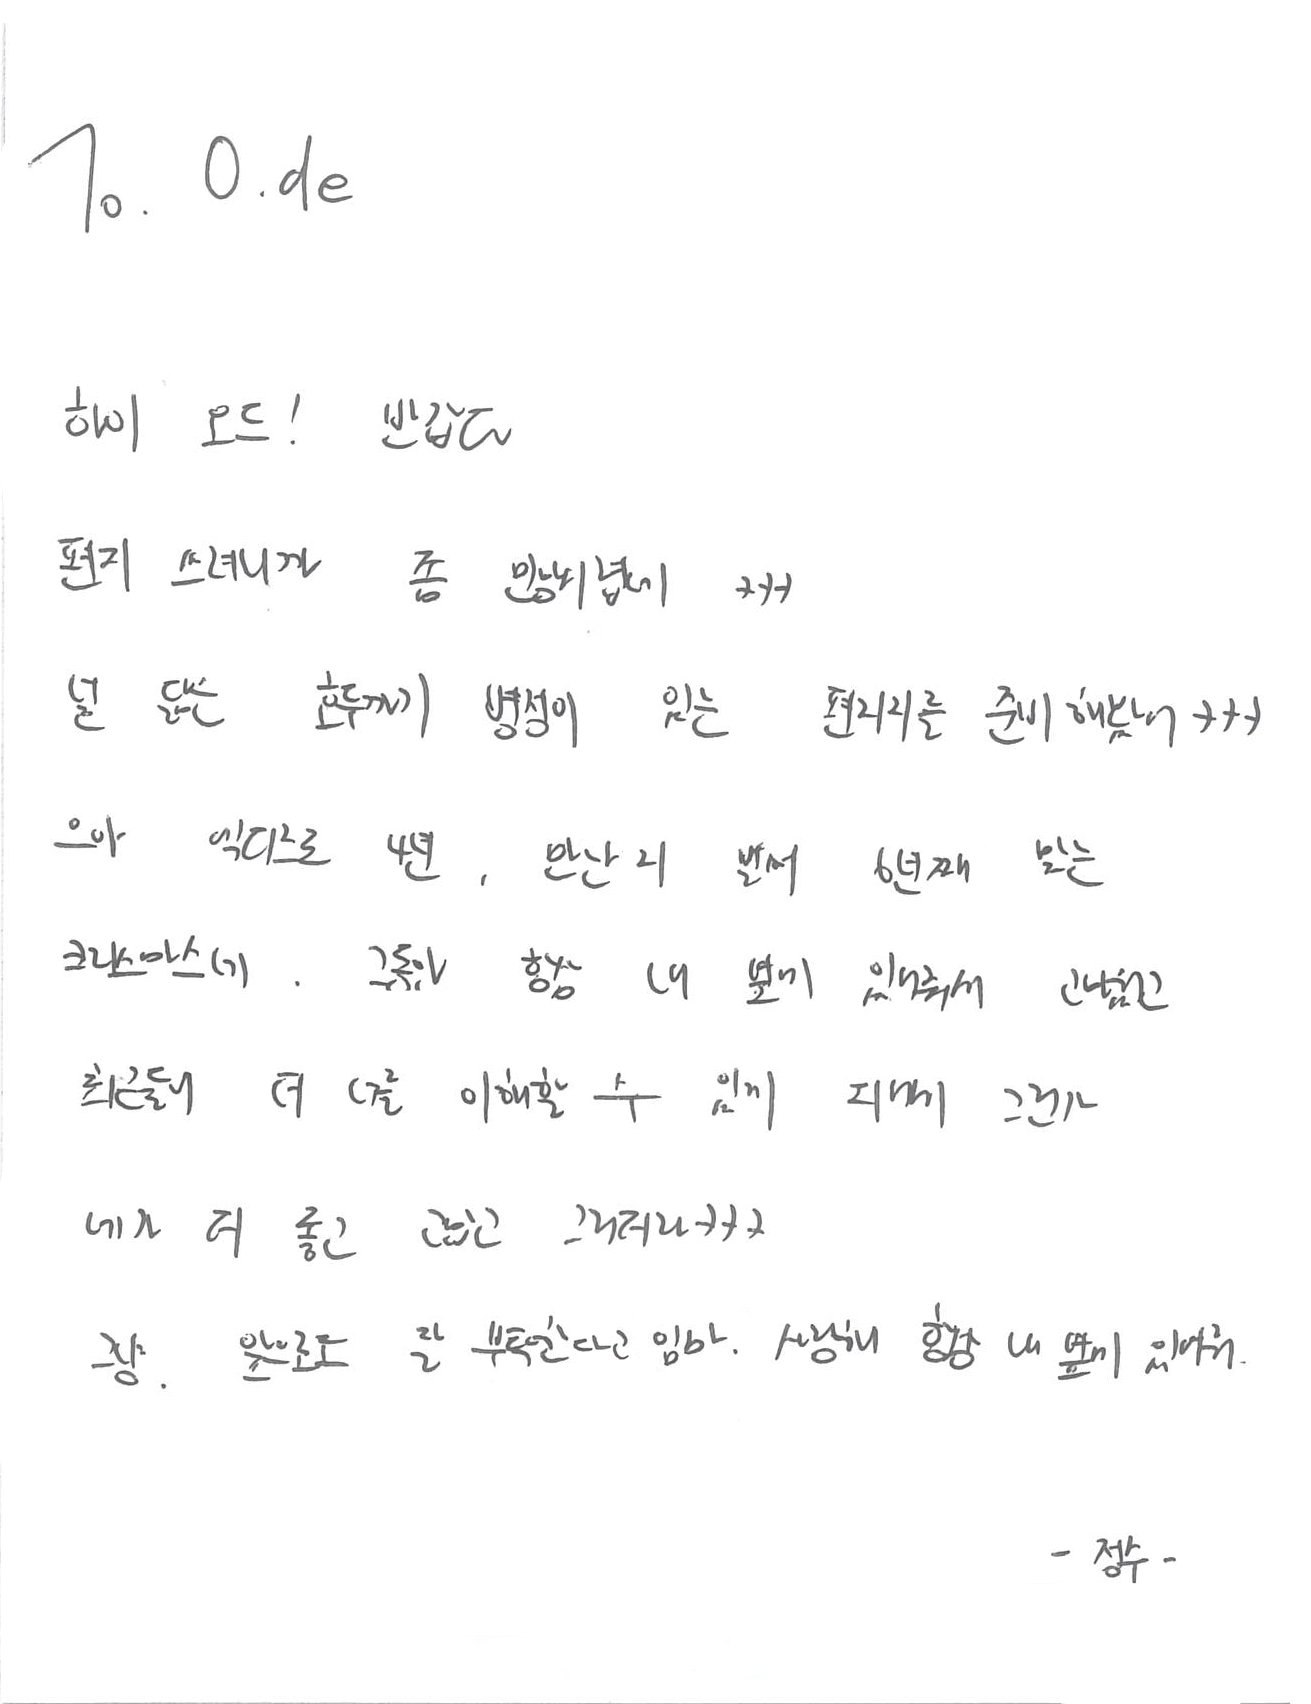 To. O.de
하이 오드! 반갑다
편지 쓰려니까 좀 민망시렵네 ㅋㅋㅋ
널 닮은 호두까기 병정이 있는 편지지를 준비해봤어 ㅋㅋㅋ
으아 엑디즈로 4년, 만난 지 벌써 6년째 맞는
크리스마스네. 그동안 항상 내 옆에 있어줘서 고맙고
최근들어 더 너를 이해할 수 있게 되니까 그런가
네가 더 좋고 그러더라 ㅋㅋㅋ
앞으로도 잘 부탁한다고 임마. 사랑해 항상 내 옆에 있어줘.
- 정수 -